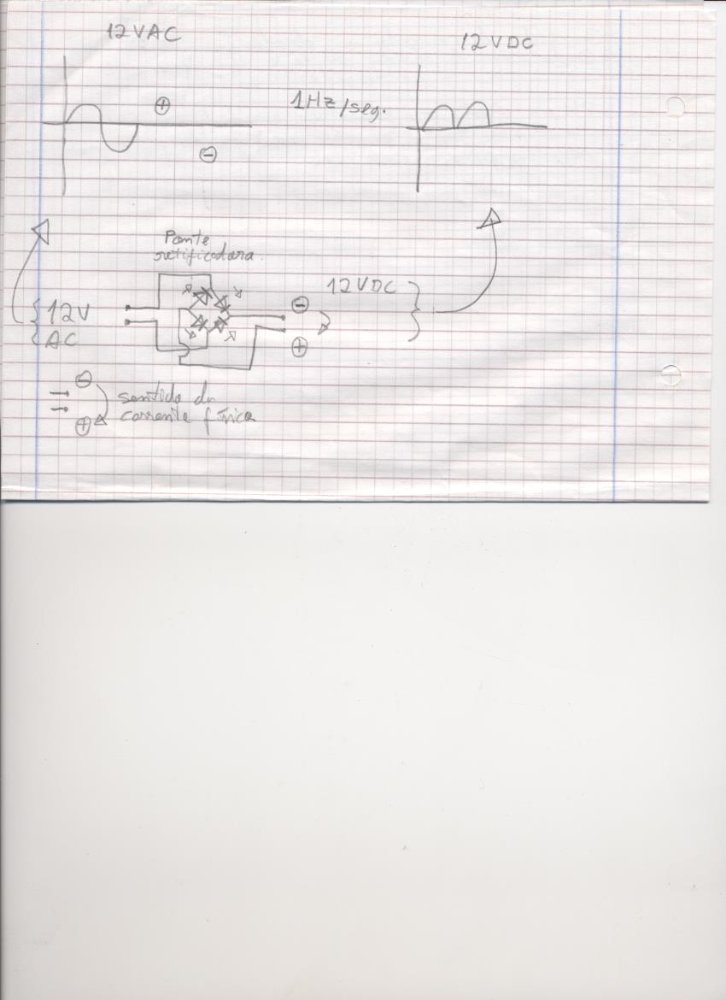 12VAC
12VDC
⊕
1Hz/seg.
⊖
Ponte
retificadora
12VDC
⊖
12V
AC
⊕
⊖
sentido da
corrente física
⊕